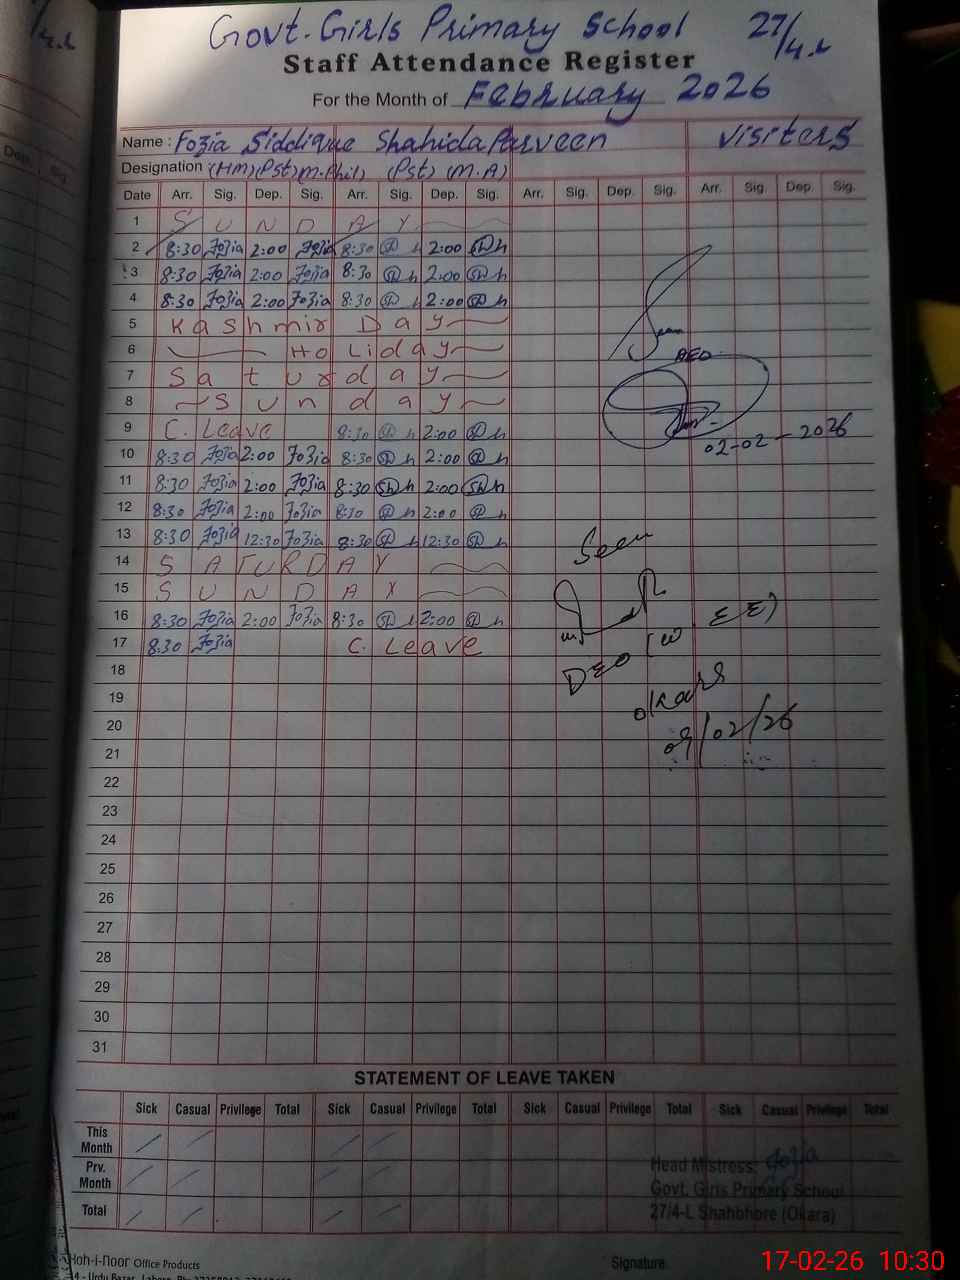 Govt. Girls Primary School 27/4.L
Staff Attendance Register
For the Month of February 2026
Name : Fozia Siddique Shahida Parveen Visiters
Designation (HM)(Pst)(M.Phil) (Pst) (M.A)
Date Arr. Sig. Dep. Sig. Arr. Sig. Dep. Sig. Arr. Sig. Dep. Sig. Arr. Sig. Dep. Sig.
1 SUNDAY
2 8:30 Fozia 2:00 Fozia 8:30 Sh 2:00 Sh
3 8:30 Fozia 2:00 Fozia 8:30 Sh 2:00 Sh
4 8:30 Fozia 2:00 Fozia 8:30 Sh 2:00 Sh
5 Kashmir Day
6 Holiday
7 Saturday
8 Sunday
9 C. Leave 8:30 Sh 2:00 Sh
10 8:30 Fozia 2:00 Fozia 8:30 Sh 2:00 Sh
11 8:30 Fozia 2:00 Fozia 8:30 Sh 2:00 Sh
12 8:30 Fozia 2:00 Fozia 8:30 Sh 2:00 Sh
13 8:30 Fozia 12:30 Fozia 8:30 Sh 12:30 Sh
14 SATURDAY
15 SUNDAY
16 8:30 Fozia 2:00 Fozia 8:30 Sh 2:00 Sh
17 8:30 Fozia C. Leave
18
19
20
21
22
23
24
25
26
27
28
29
30
31
Seen
AEO
02-02-2026
Seen
DEO (W. EE)
Okara
09/02/26
STATEMENT OF LEAVE TAKEN
Sick Casual Privilege Total Sick Casual Privilege Total Sick Casual Privilege Total Sick Casual Privilege Total
This Month
Prv. Month
Total
Head Mistress: Fozia
Govt. Girls Primary School
27/4-L Shahbhore (Okara)
Koh-i-noor Office Products
Signature.
17-02-26 10:30